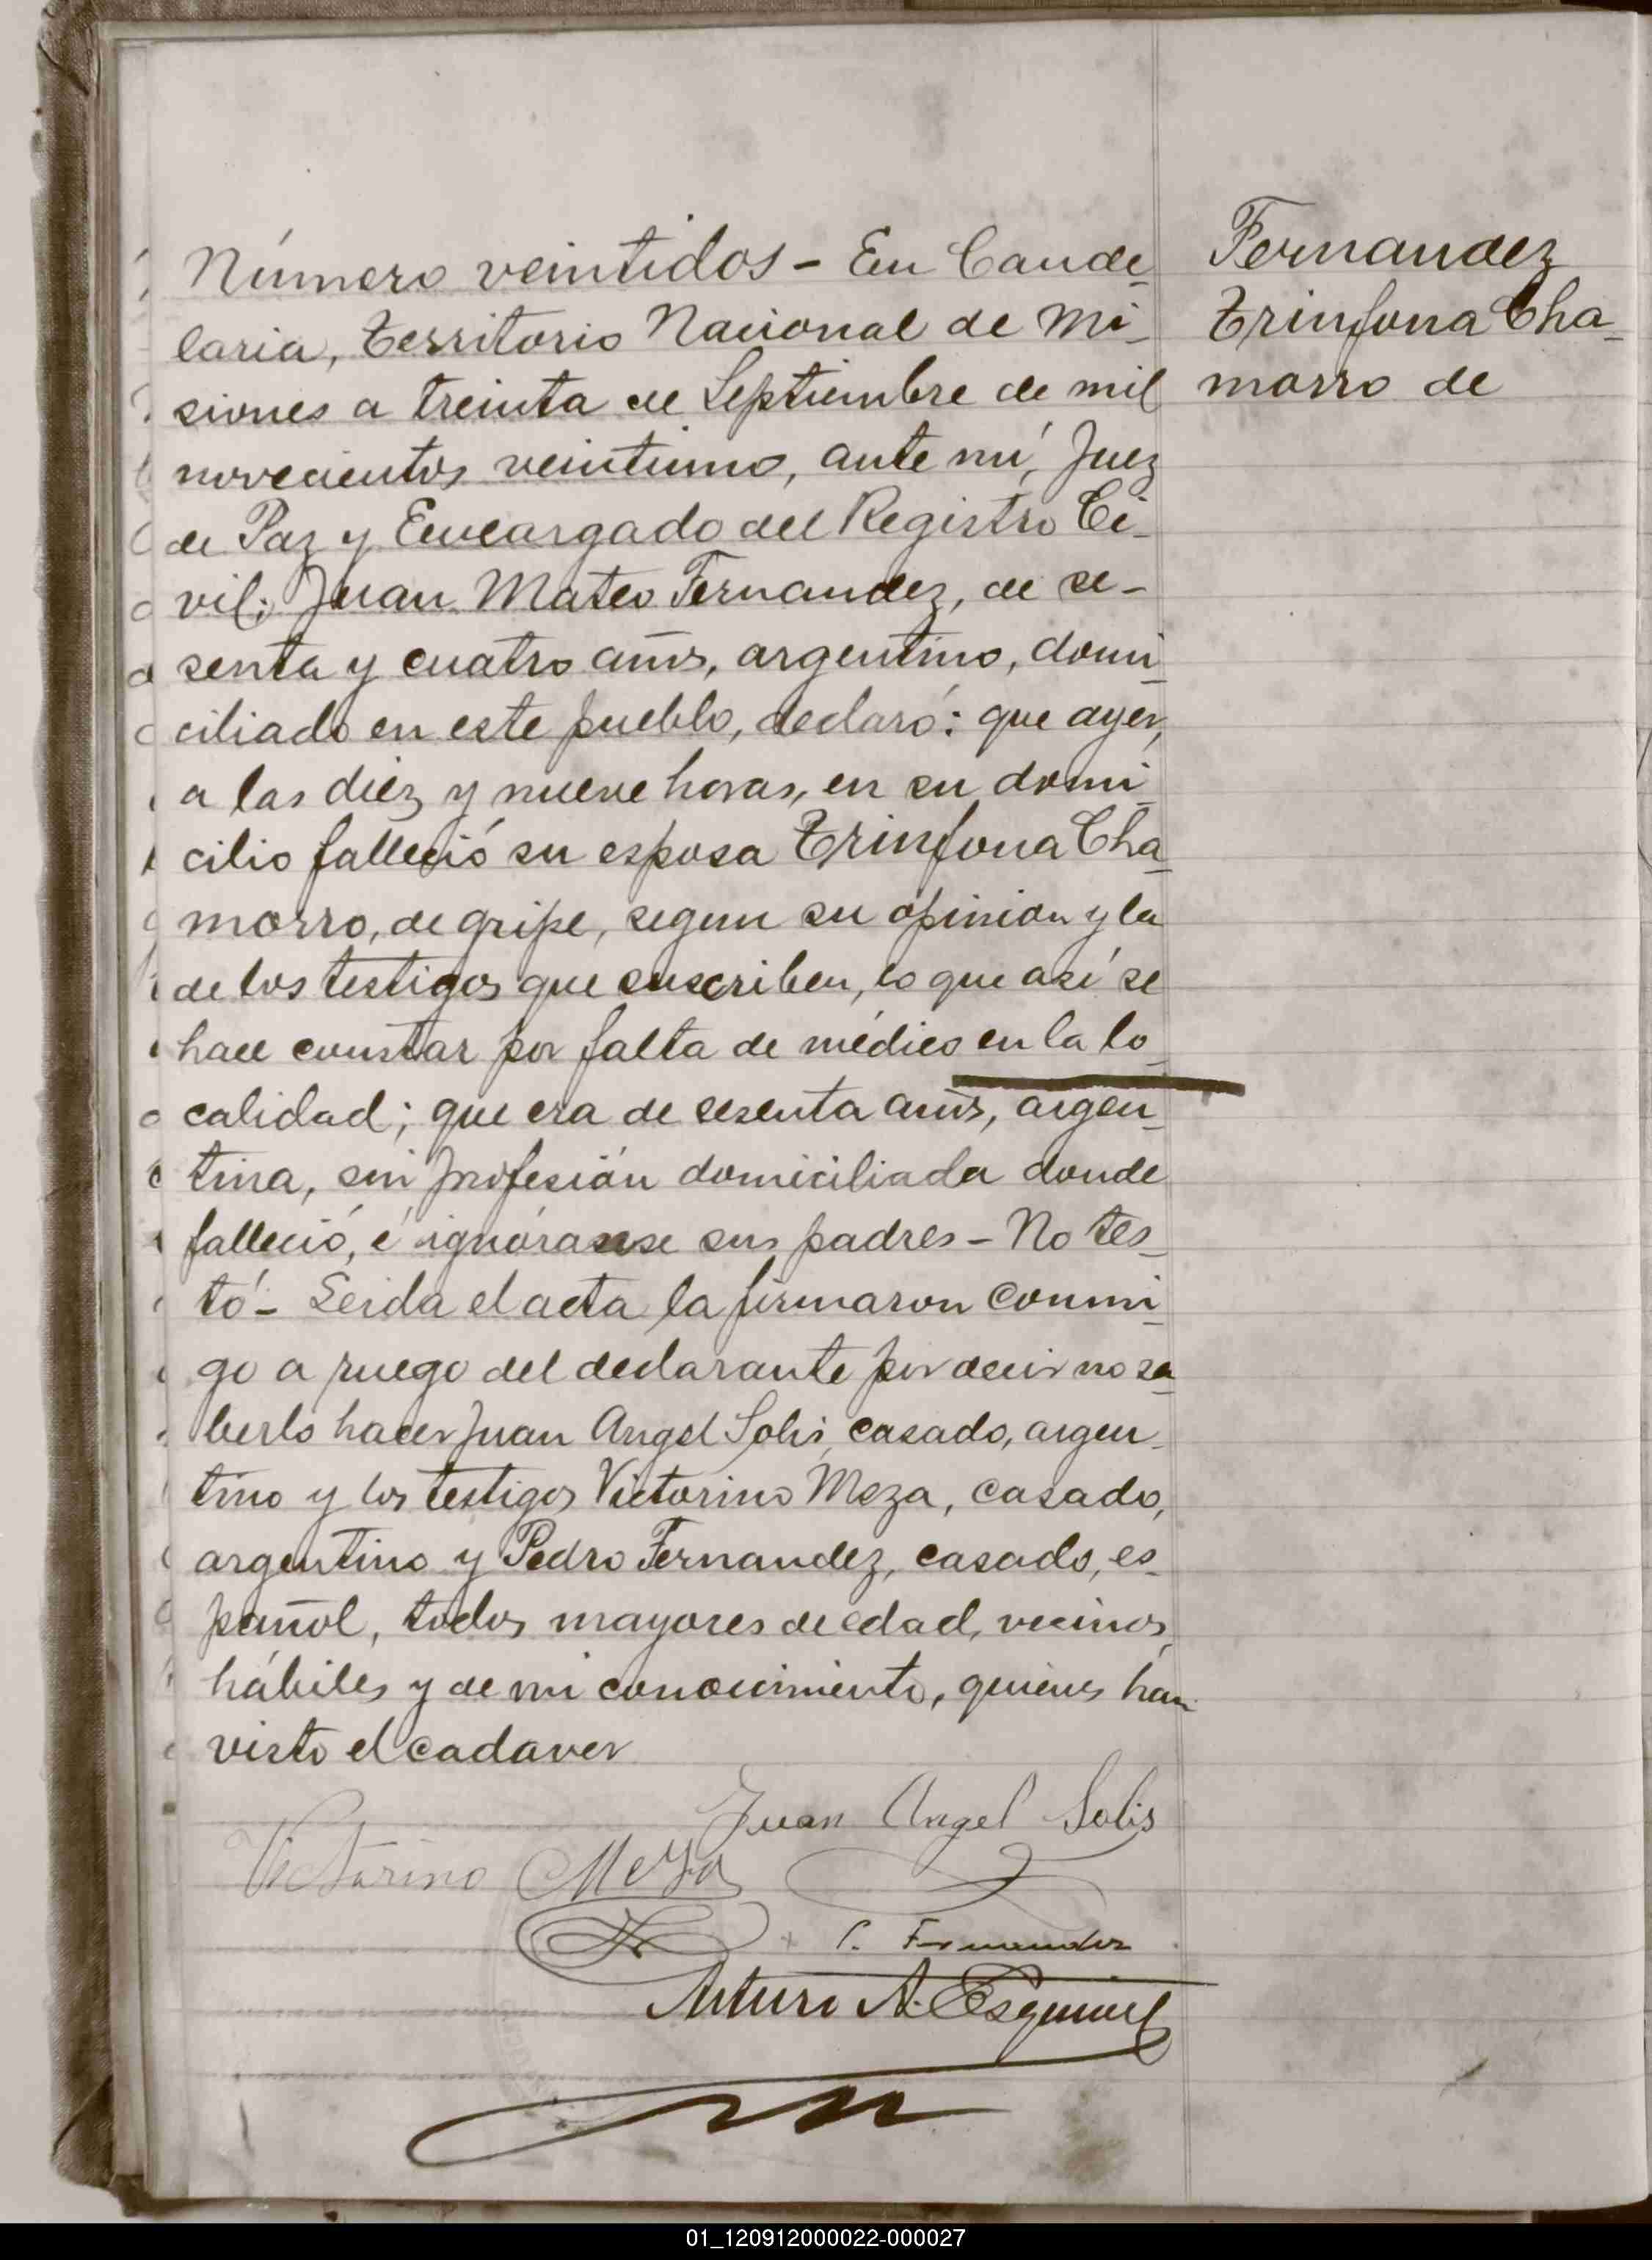 Número veintidos - En Cande-
laria, Territorio Nacional de Mi-
siones a treinta de Septiembre de mil
novecientos veintiuno, ante mí, Juez
de Paz y Encargado del Registro Ci-
vil; Juan Mateo Fernandez, de se-
senta y cuatro años, argentino, domi-
ciliado en este pueblo, declaró: que ayer,
a las diez y nueve horas, en su domi-
cilio falleció su esposa Trinfona Cha-
morro, de gripe, segun su opinion y la
de los testigos que suscriben, lo que así se
hace constar por falta de médico en la lo-
calidad; que era de sesenta años, argen-
tina, sin profesión domiciliada donde
falleció, é ignórase sus padres - No tes-
tó - Leida el acta la firmaron conmi-
go a ruego del declarante por decir no sa-
berlo hacer Juan Angel Solis, casado, argen-
tino y los testigos Victorino Meza, casado,
argentino y Pedro Fernandez, casado, es-
pañol, todos mayores de edad, vecinos,
hábiles y de mi conocimiento, quienes han
visto el cadaver
Fernandez
Trinfona Cha-
morro de
Juan Angel Solis
Victorino Meza
P. Fernandez
Arturo A. Esquivel
01_120912000022-000027